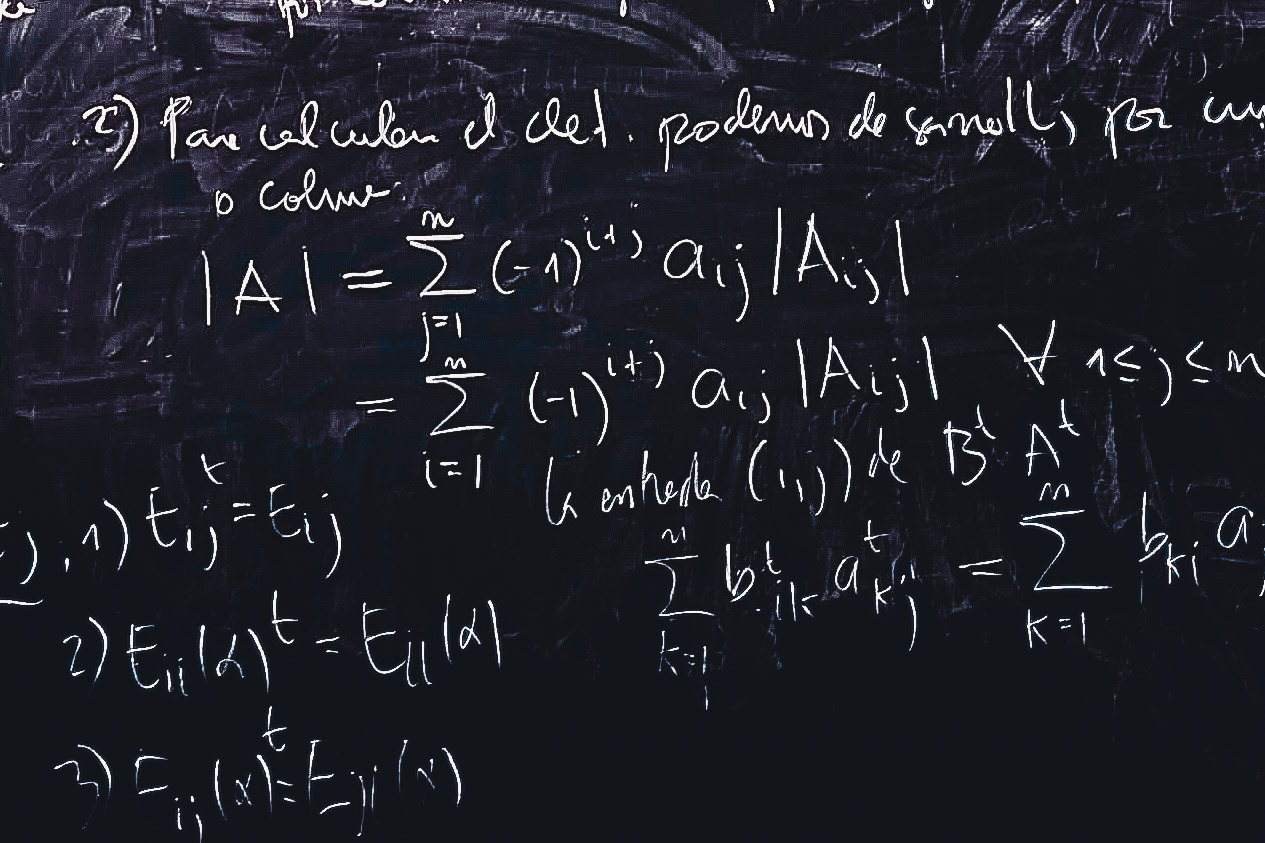 2) Para calcular el det. podemos desarrollar por
o columna:
|A| = \sum_{j=1}^{n} (-1)^{i+j} a_{ij} |A_{ij}|
= \sum_{i=1}^{n} (-1)^{i+j} a_{ij} |A_{ij}| ∀ 1 ≤ j ≤ n
la entrada (i,j) de B^t A^t
\sum_{k=1}^{n} b^t_{ik} a^t_{kj} = \sum_{k=1}^{n} b_{ki} a
1) E_{ij}^t = E_{ij}
2) E_{ii}(α)^t = E_{ii}(α)
3) E_{ij}(α)^t = E_{ji}(α)